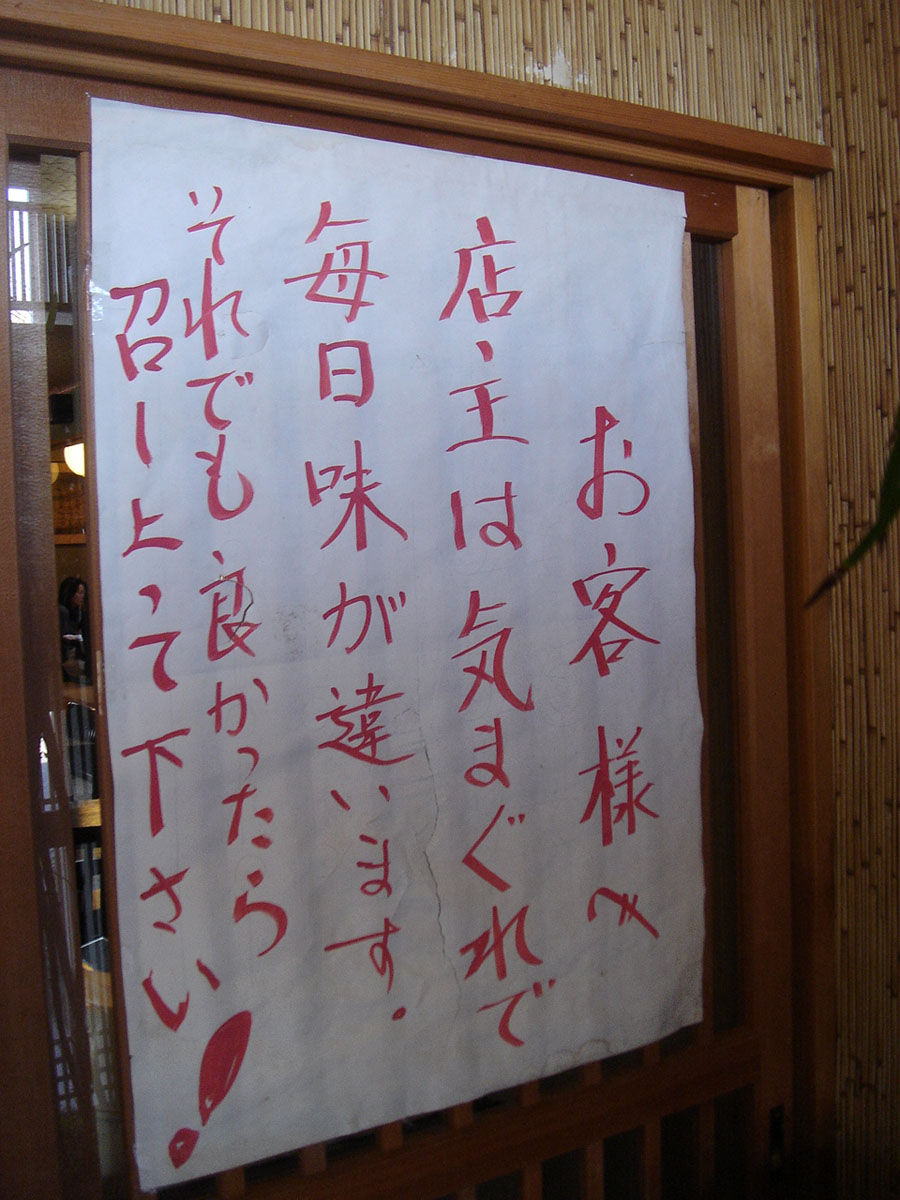 お客様へ
店主は気まぐれで
毎日味が違います.
それでも良かったら
召し上って下さい!